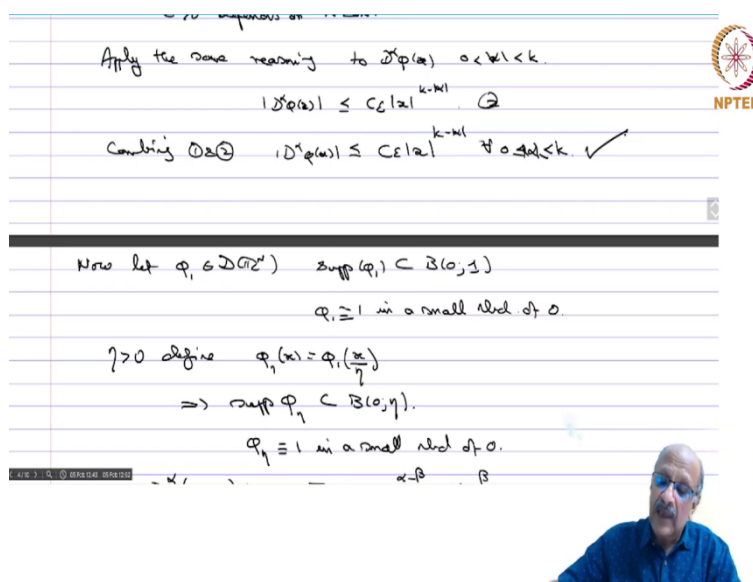 Apply the same reasoning to D^α φ(x) 0<|α|<k.
|D^α φ(x)| ≤ Cε|x|^{k-|α|}. ②
Combining ①&② |D^α φ(x)| ≤ Cε|x|^{k-|α|} ∀ 0≤|α|<k. ✓
Now let φ₁ ∈ D(ℝ^N) supp(φ₁) ⊂ B(0;1)
φ₁ ≡ 1 in a small nbd. of 0.
η>0 define φ_η(x) = φ₁(x/η)
⇒ supp φ_η ⊂ B(0;η).
φ_η ≡ 1 in a small nbd of 0.
NPTEL